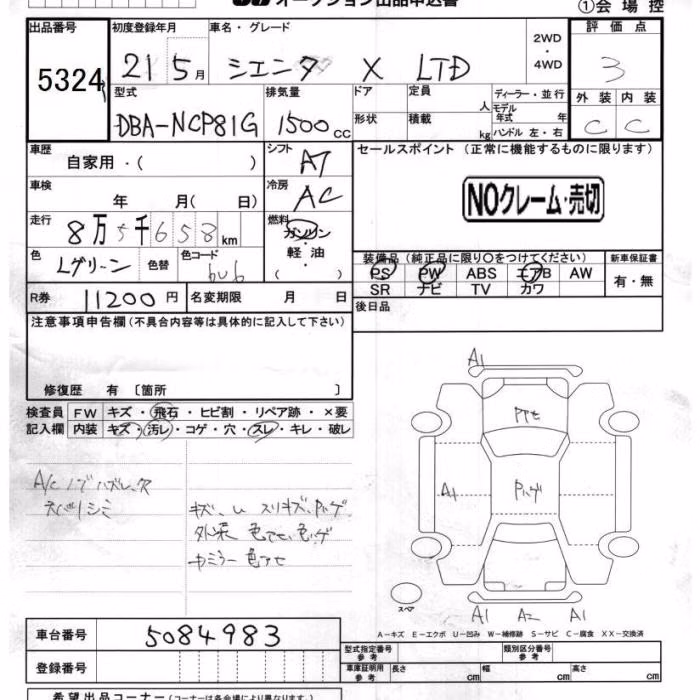 オークション出品申込書
①会場控
出品番号 初度登録年月 車名・グレード 2WD・4WD 評価点
5324 21 5月 シエンタ X LTD 3
型式 排気量 ドア 定員 人 ディーラー・並行 外装 内装
DBA-NCP81G 1500cc 形状 積載 kg モデル年式 年 ハンドル 左・右 C C
車歴 自家用・( ) シフト AT セールスポイント (正常に機能するものに限ります)
車検 年 月( 日) 冷房 AC NOクレーム・売切
走行 8万5千658km 燃料 ガソリン・軽油 ( )
色 Lグリーン 色替 色コード 6U6 装備品(純正品に限り○をつけてください) 新車保証書
PS PW ABS エアB AW 有・無
SR ナビ TV カワ
R券 11200円 名変期限 月 日 後日品
注意事項申告欄(不具合内容等は具体的に記入して下さい)
修復歴 有〔箇所 〕
検査員 FW キズ・飛石・ヒビ割・リペア跡・×要
記入欄 内装 キズ・汚レ・コゲ・穴・スレ・キレ・破レ
A/Cノブハズレ
シミ
キズ、U スリキズ、Pハゲ
外装 色アセ、色ハゲ
色アセ
A1
Pアセ
A1 Pハゲ
スペア
A1 A2 A1
A-キズ E-エクボ U-凹み W-補修跡 S-サビ C-腐食 XX-交換済
車台番号 5084983 型式指定番号 参考 類別区分番号 参考
登録番号 車庫証明用 参考 長さ cm 幅 cm 高さ cm
希望出品コーナー(コーナーは各会場により異なります。)